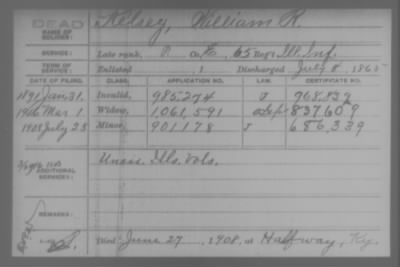 DEAD
NAME OF SOLDIER: Kelsey, William R.
SERVICE: Late rank, P. Co. E, 65 Regt. Ill. Inf.
TERM OF SERVICE: Enlisted , 1 Discharged July 8, 1865
DATE OF FILING. CLASS. APPLICATION NO. CERTIFICATE NO.
1891, Jan. 31. Invalid, 985,274 J 968,832
Mar 1 Widow, 1,061,591 837609
1908 July 25 Minor, 901178 J 686,339
ADDITIONAL SERVICES: Unass. Ills. Vols.
REMARKS:
Died June 27, 1908, at Halfway, Ky.